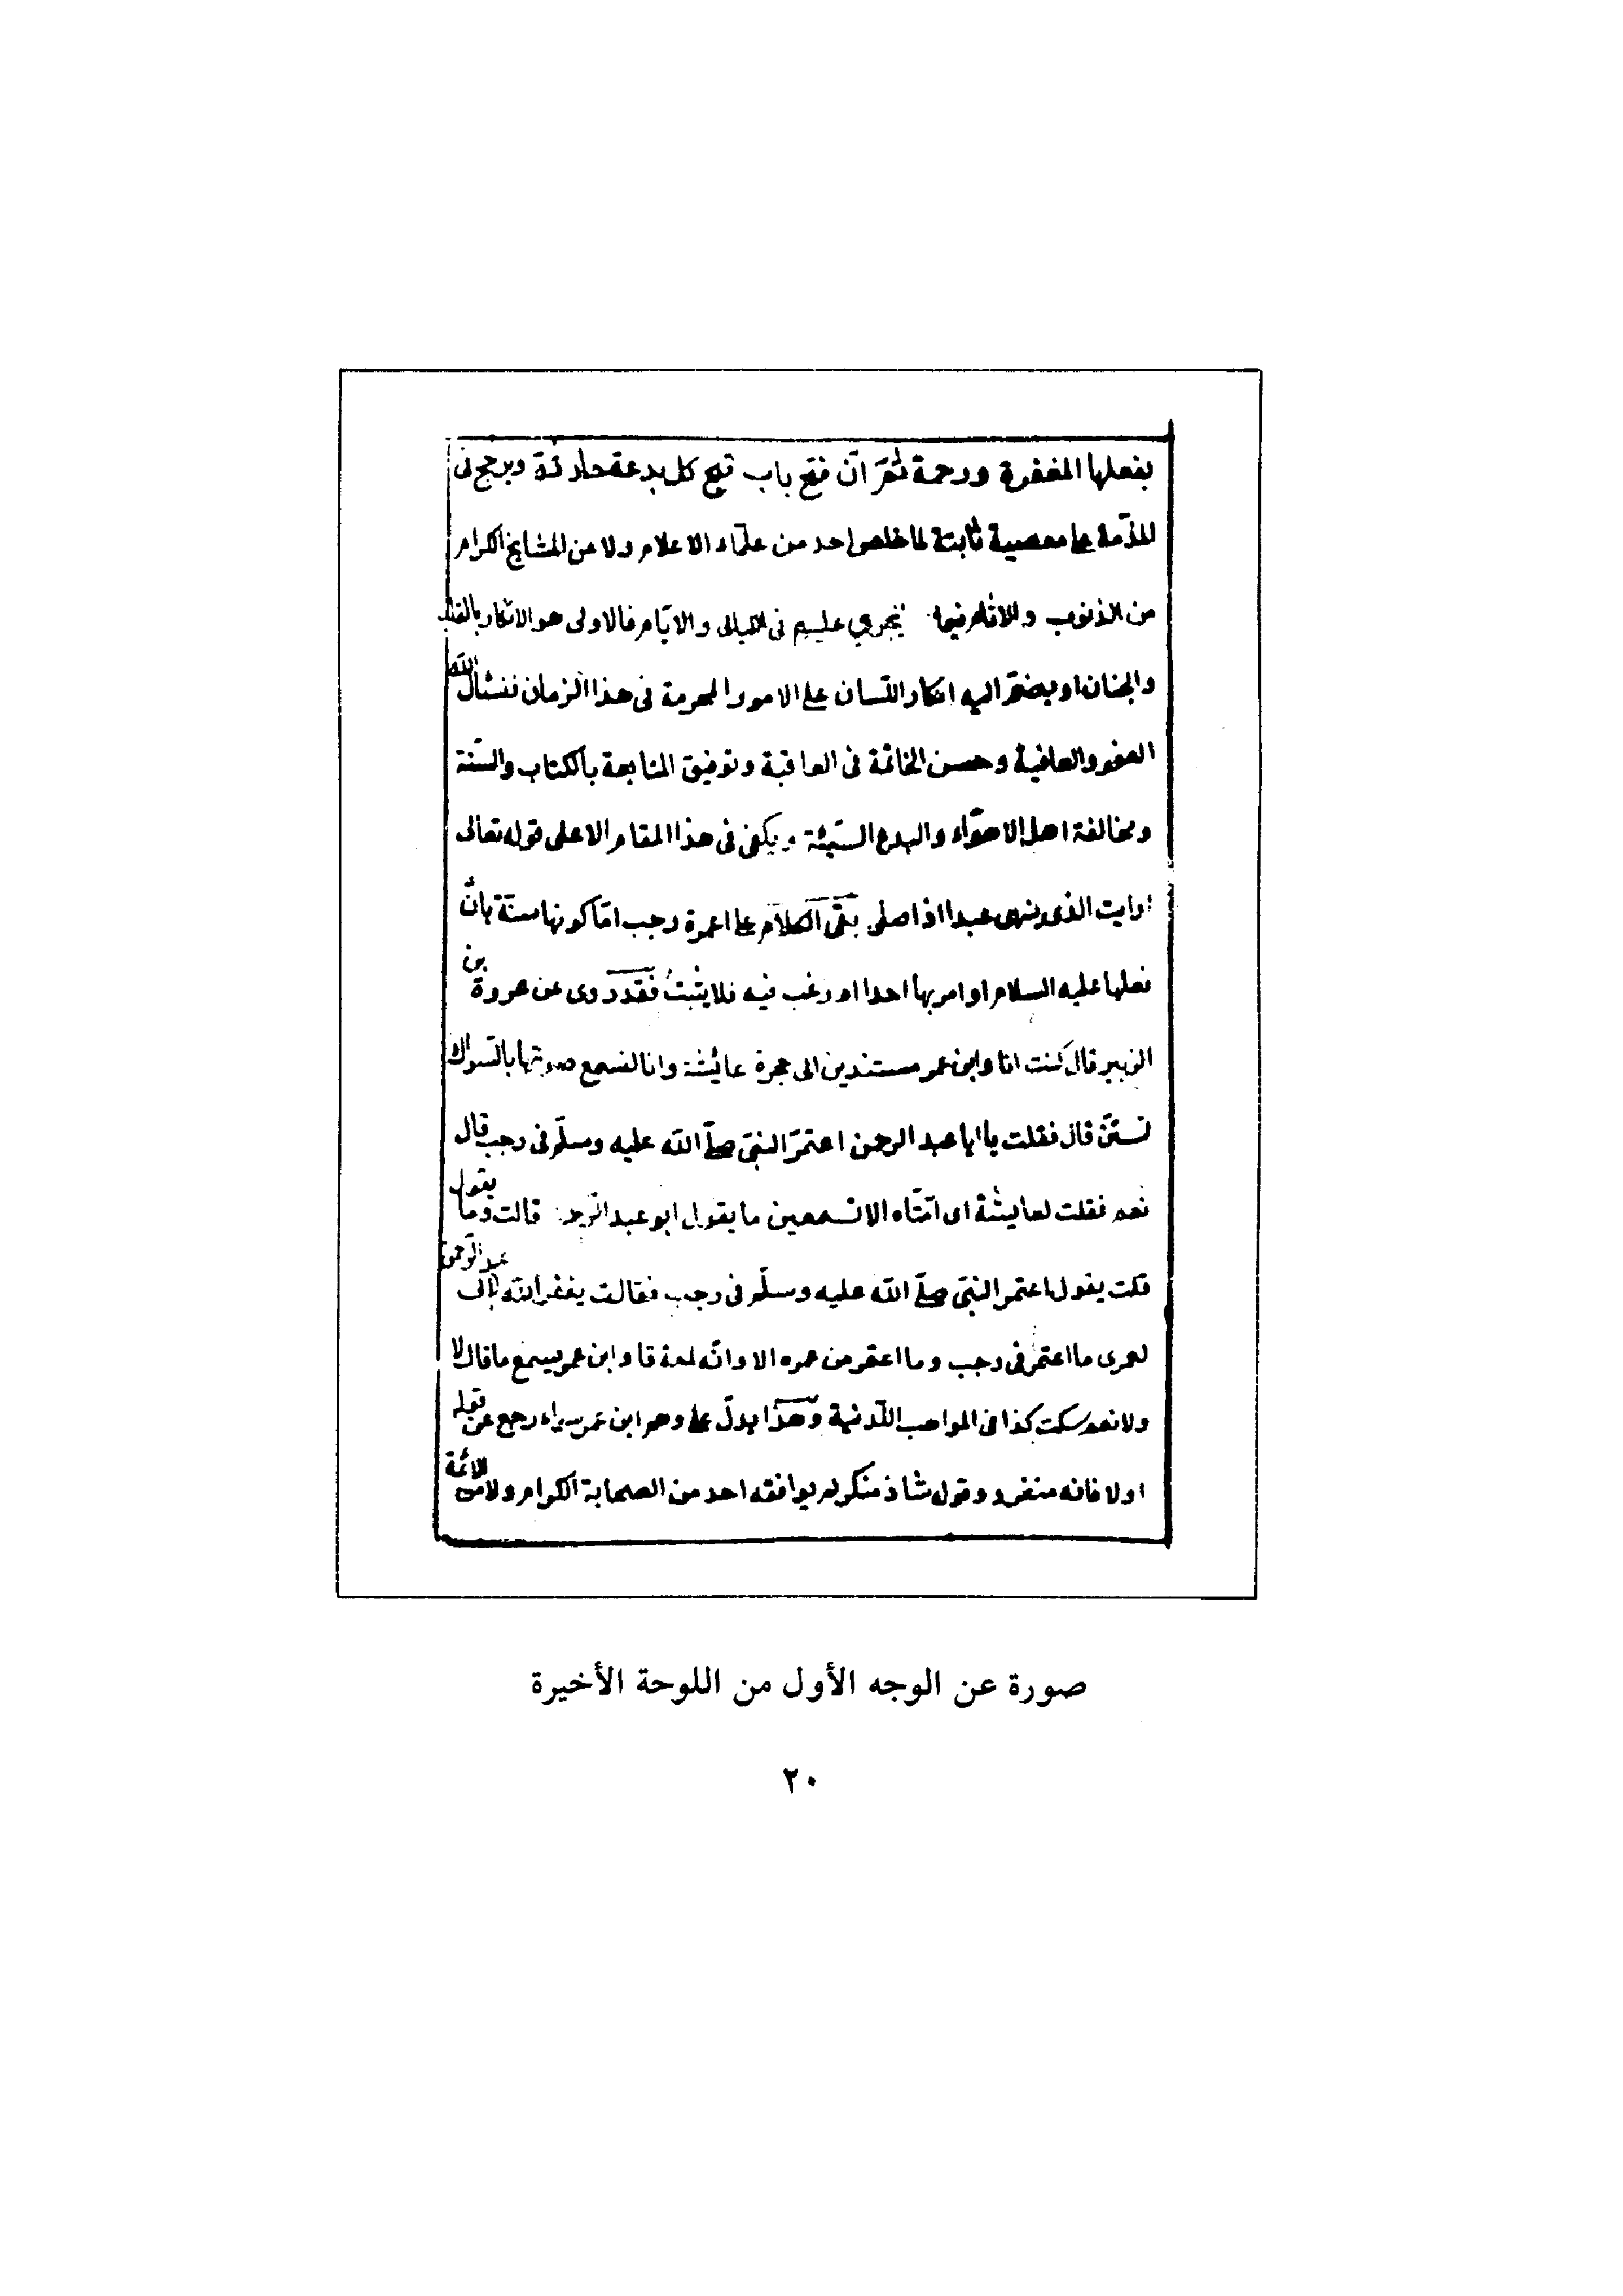 بفعلها المغفرة ورحمة ثمّ انّ فتح باب قبح كل بدعة حادثة ويرجح فى
المذمة على معصية ثابتة لما خلص احد من علمآء الاعلام ولا من المشايخ الكرام
من الذنوب والاثام فيما يجري عليهم فى الليالى والايّام فالاولى هو الانكار بالقلب
والجنان او يضمّ اليه انكار اللسان على الامور المحرمة فى هذا الزمان فنسئال الله
العفو والعافية وحسن الخاتمة فى العاقبة وتوفيق المتابعة بالكتاب والسّنة
ومخالفة اهل الاهوآء والبدع السّيئة ويكفى فى هذا المقام الاعلى قوله تعالى
ارايت الذى ينهى عبدا اذا صلى بقى الكلام على عمرة رجب امّا كونها سنّة بانّ
فعلها عليه السلام او امر بها احدا او رغب فيه فلا يثبت فقد روى عن عروة بن
الزبير قال كنت انا وابن عمر مستندين الى حجرة عايشة وانا لنسمع صوتها بالسّواك
تستنّ قال فقلت يا ابا عبد الرحمن اعتمر النبىّ صلّى الله عليه وسلّم فى رجب قال
نعم فقلت لعايشة اى امّتاه الا تسمعين ما يقول ابو عبد الرّحمن قالت وما يقول
قلت يقول اعتمر النبىّ صلّى الله عليه وسلّم فى رجب فقالت يغفر الله لابى عبد الرّحمن
لعمرى ما اعتمر فى رجب وما اعتمر من عمره الا وانّه لمعه قا وابن عمر يسمع ما قال لا
ولا نعم سكت كذا فى المواهب اللّدنية وهذا يدلّ على وهم ابن عمر رجع عن قوله
اولا فانه منفرد وقول شاذ منكر لم يوافقه احد من الصحابة الكرام ولا من الائمّة
صورة عن الوجه الأول من اللوحة الأخيرة
٢٠